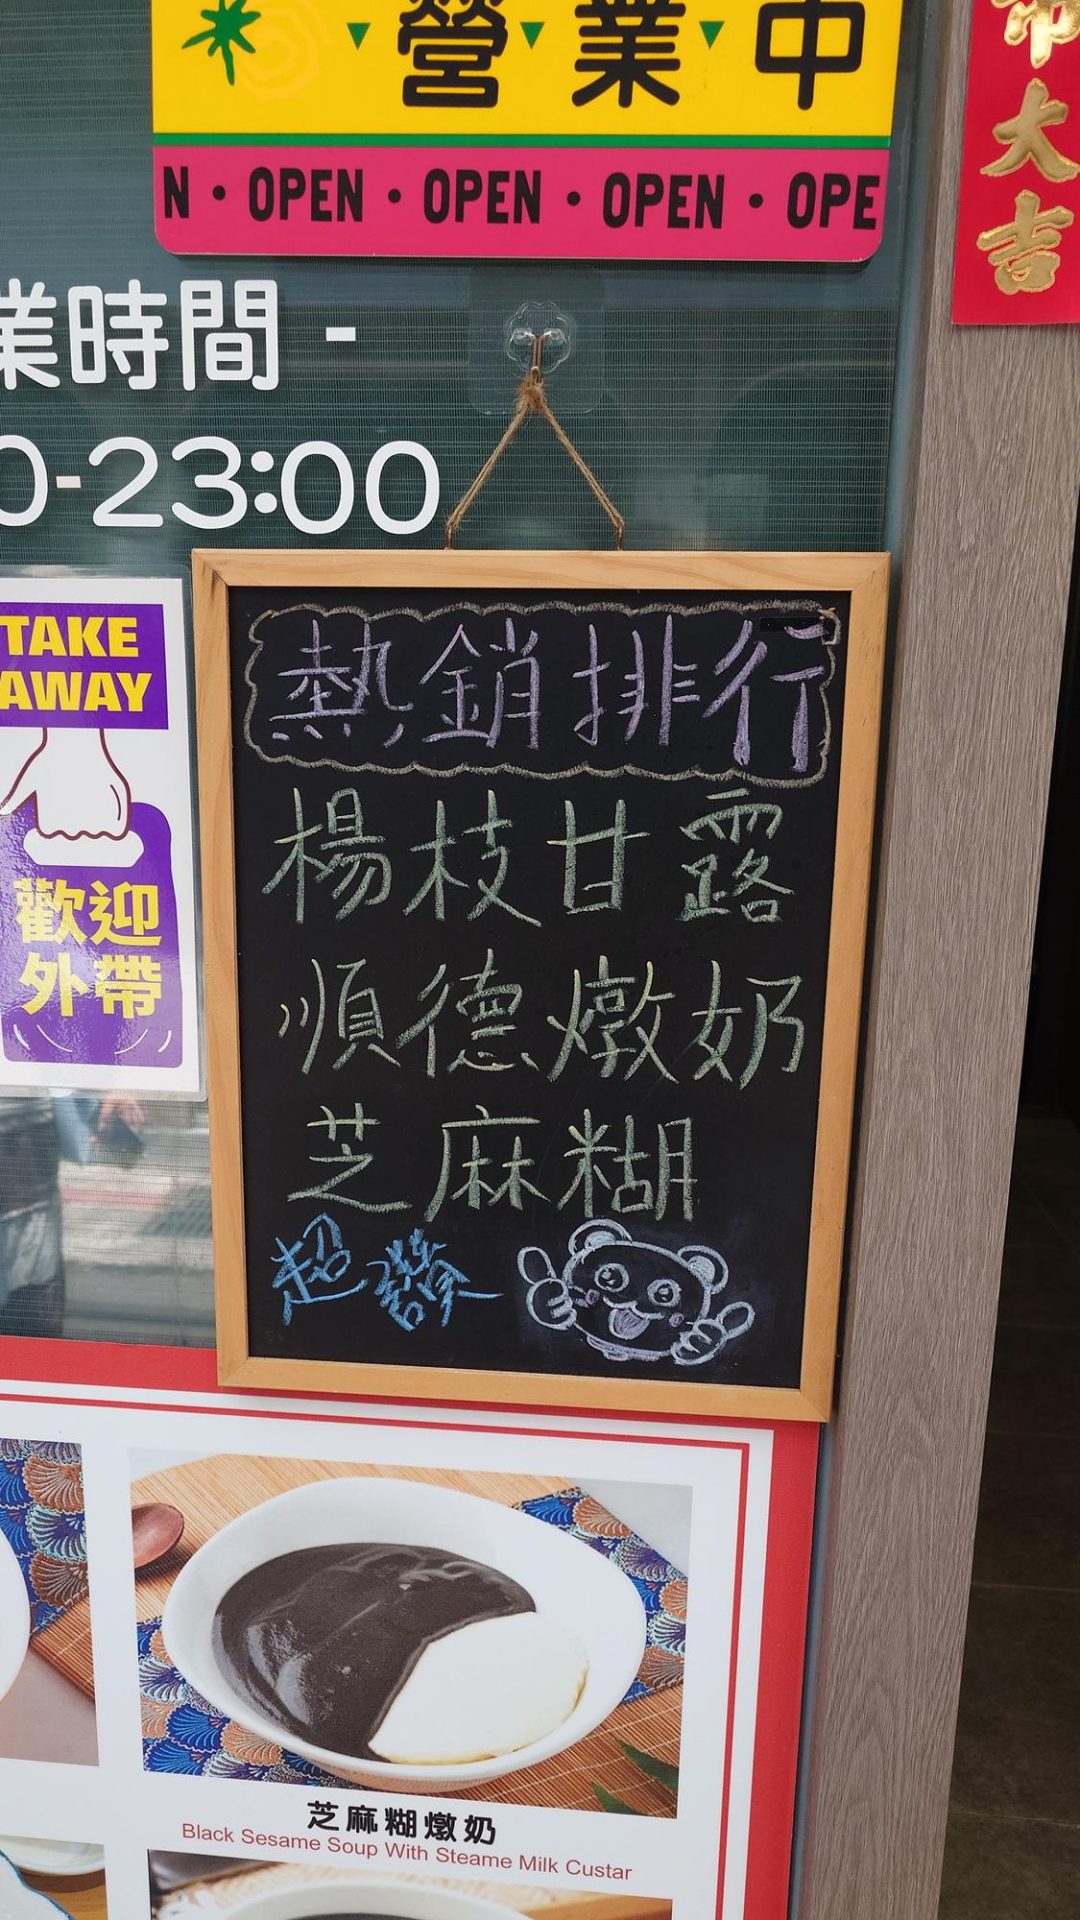 營業中
N·OPEN·OPEN·OPEN·OPE
大吉
業時間 -
0-23:00
TAKE
AWAY
歡迎
外帶
熱銷排行
楊枝甘露
順德燉奶
芝麻糊
超發
芝麻糊燉奶
Black Sesame Soup With Steame Milk Custar